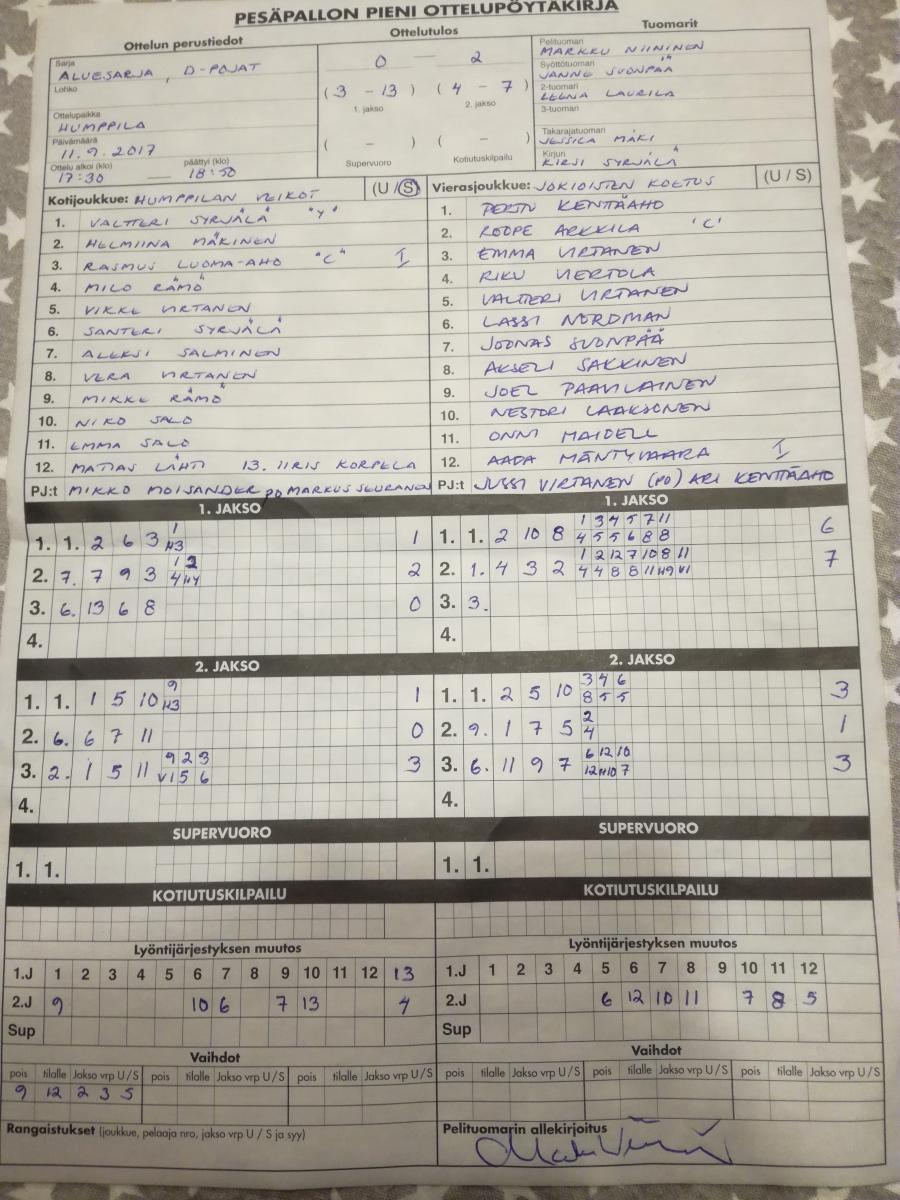 PESÄPALLON PIENI OTTELUPÖYTÄKIRJA
Ottelun perustiedot
Sarja
ALUESARJA, D-POJAT
Lohko
Ottelupaikka
HUMPPILA
Päivämäärä
11.9.2017
Ottelu alkoi (klo) päättyi (klo)
17:30 — 18:50
Ottelutulos
0 – 2
(3 – 13) (4 – 7)
1. jakso 2. jakso
( – ) ( – )
Supervuoro Kotiutuskilpailu
Tuomarit
Pelituomari
MARKKU NIININEN
Syöttötuomari
JANNE SUONPÄÄ
2-tuomari
LEENA LAURILA
3-tuomari
Takarajatuomari
JESSICA MÄKI
Kirjuri
KIRSI SYRJÄLÄ
Kotijoukkue: HUMPPILAN VEIKOT (U / S)
1. VALTTERI SYRJÄLÄ "Y"
2. HELMIINA MÄKINEN
3. RASMUS LUOMA-AHO "C" I
4. MILO RÄMÖ
5. VIKKE VIRTANEN
6. SANTERI SYRJÄLÄ
7. ALEKSI SALMINEN
8. VERA VIRTANEN
9. MIKKE RÄMÖ
10. NIKO SALO
11. EMMA SALO
12. MATIAS LÄHTI 13. IIRIS KORPELA
PJ:t MIKKO MOISANDER PO MARKUS SEURANEN
Vierasjoukkue: JOKIOISTEN KOETUS (U / S)
1. KENTTÄAHO
2. ROOPE ARKKILA 'C'
3. EMMA VIRTANEN
4. RIKU VIERTOLA
5. VALTTERI VIRTANEN
6. LASSI NORDMAN
7. JOONAS SUONPÄÄ
8. AKSELI SAKKINEN
9. JOEL PAAVILAINEN
10. NESTORI LAAKSONEN
11. ONNI MAIDELL
12. AADA MÄNTYVAARA I
PJ:t JUSSI VIRTANEN (PO) ARI KENTTÄAHO
1. JAKSO
1. 1. 2 6 3 1 1
H3
2. 7. 7 9 3 1 2 2
4 H4
3. 6. 13 6 8 0
4.
1. JAKSO
1. 1. 2 10 8 1 3 4 5 7 11 6
4 5 5 6 8 8
2. 1. 4 3 2 1 2 12 7 10 8 11 7
4 4 8 8 11 H9 V1
3. 3.
4.
2. JAKSO
1. 1. 1 5 10 9 1
H3
2. 6. 6 7 11 0
3. 2. 1 5 11 9 2 3 3
V1 5 6
4.
2. JAKSO
1. 1. 2 5 10 3 4 6 3
8 5 5
2. 9. 1 7 5 2 1
4
3. 6. 11 9 7 6 12 10 3
12 H10 7
4.
SUPERVUORO
1. 1.
SUPERVUORO
1. 1.
KOTIUTUSKILPAILU
KOTIUTUSKILPAILU
Lyöntijärjestyksen muutos
1.J 1 2 3 4 5 6 7 8 9 10 11 12 13
2.J 9 10 6 7 13 4
Sup
Lyöntijärjestyksen muutos
1.J 1 2 3 4 5 6 7 8 9 10 11 12
2.J 6 12 10 11 7 8 5
Sup
Vaihdot
pois tilalle Jakso vrp U / S pois tilalle Jakso vrp U / S pois tilalle Jakso vrp U / S
9 12 2 3 S
Vaihdot
pois tilalle Jakso vrp U / S pois tilalle Jakso vrp U / S pois tilalle Jakso vrp U / S
Rangaistukset (joukkue, pelaaja nro, jakso vrp U / S ja syy)
Pelituomarin allekirjoitus